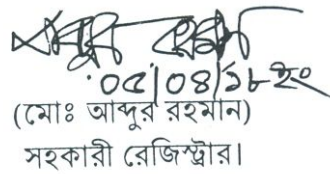 ০৫/০৪/১৮ইং
(মোঃ আব্দুর রহমান)
সহকারী রেজিস্ট্রার।